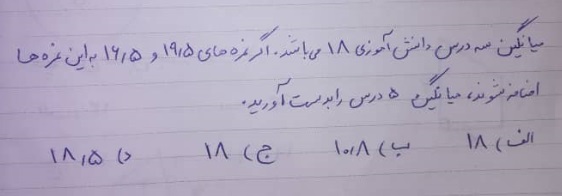 میانگین سه درس دانش آموزی ۱۸ می باشد. اگر نمره های ۱۹٫۵ و ۱۶٫۵ به این نمره ها
اضافه شوند، میانگین ۵ درس را بدست آورید.
الف) ۱۸ ب) ۱۰٫۸ ج) ۱۸ د) ۱۸٫۵